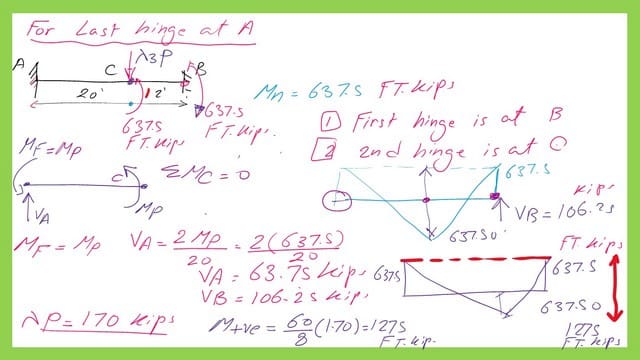 For Last hinge at A
λ3P
A
C
B
20'
12'
637.5
FT. Kips
637.5
FT.Kip.
Mn = 637.5 FT. Kips
1 First hinge is at B
2 2nd hinge is at C
MF = MP
C
ΣMC = 0
VA
MP
637.5
Kips
VB = 106.25
637.50
MF = MP VA = 2MP/20 = 2(637.5)/20
VA = 63.75 Kips
VB = 106.25 Kips
FT Kips
637.5
637.5
637.50
1275
FT. Kips
λP = 170 Kips
M+ve = 60/8 (170) = 1275
FT. Kip.